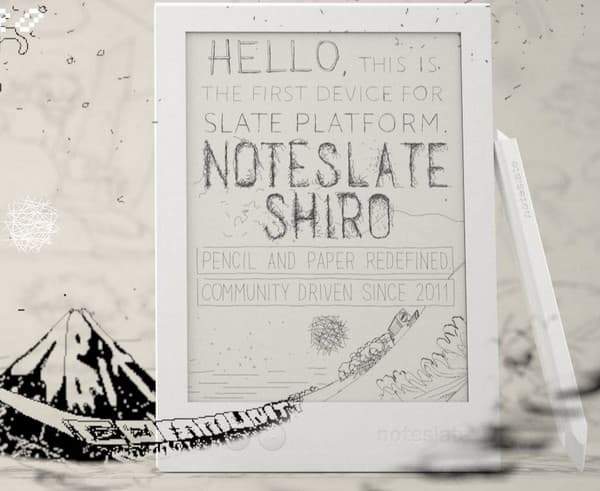 HELLO, THIS IS
THE FIRST DEVICE FOR
SLATE PLATFORM.
NOTESLATE
SHIRO
PENCIL AND PAPER REDEFINED.
COMMUNITY DRIVEN SINCE 2011
COMMUNITY